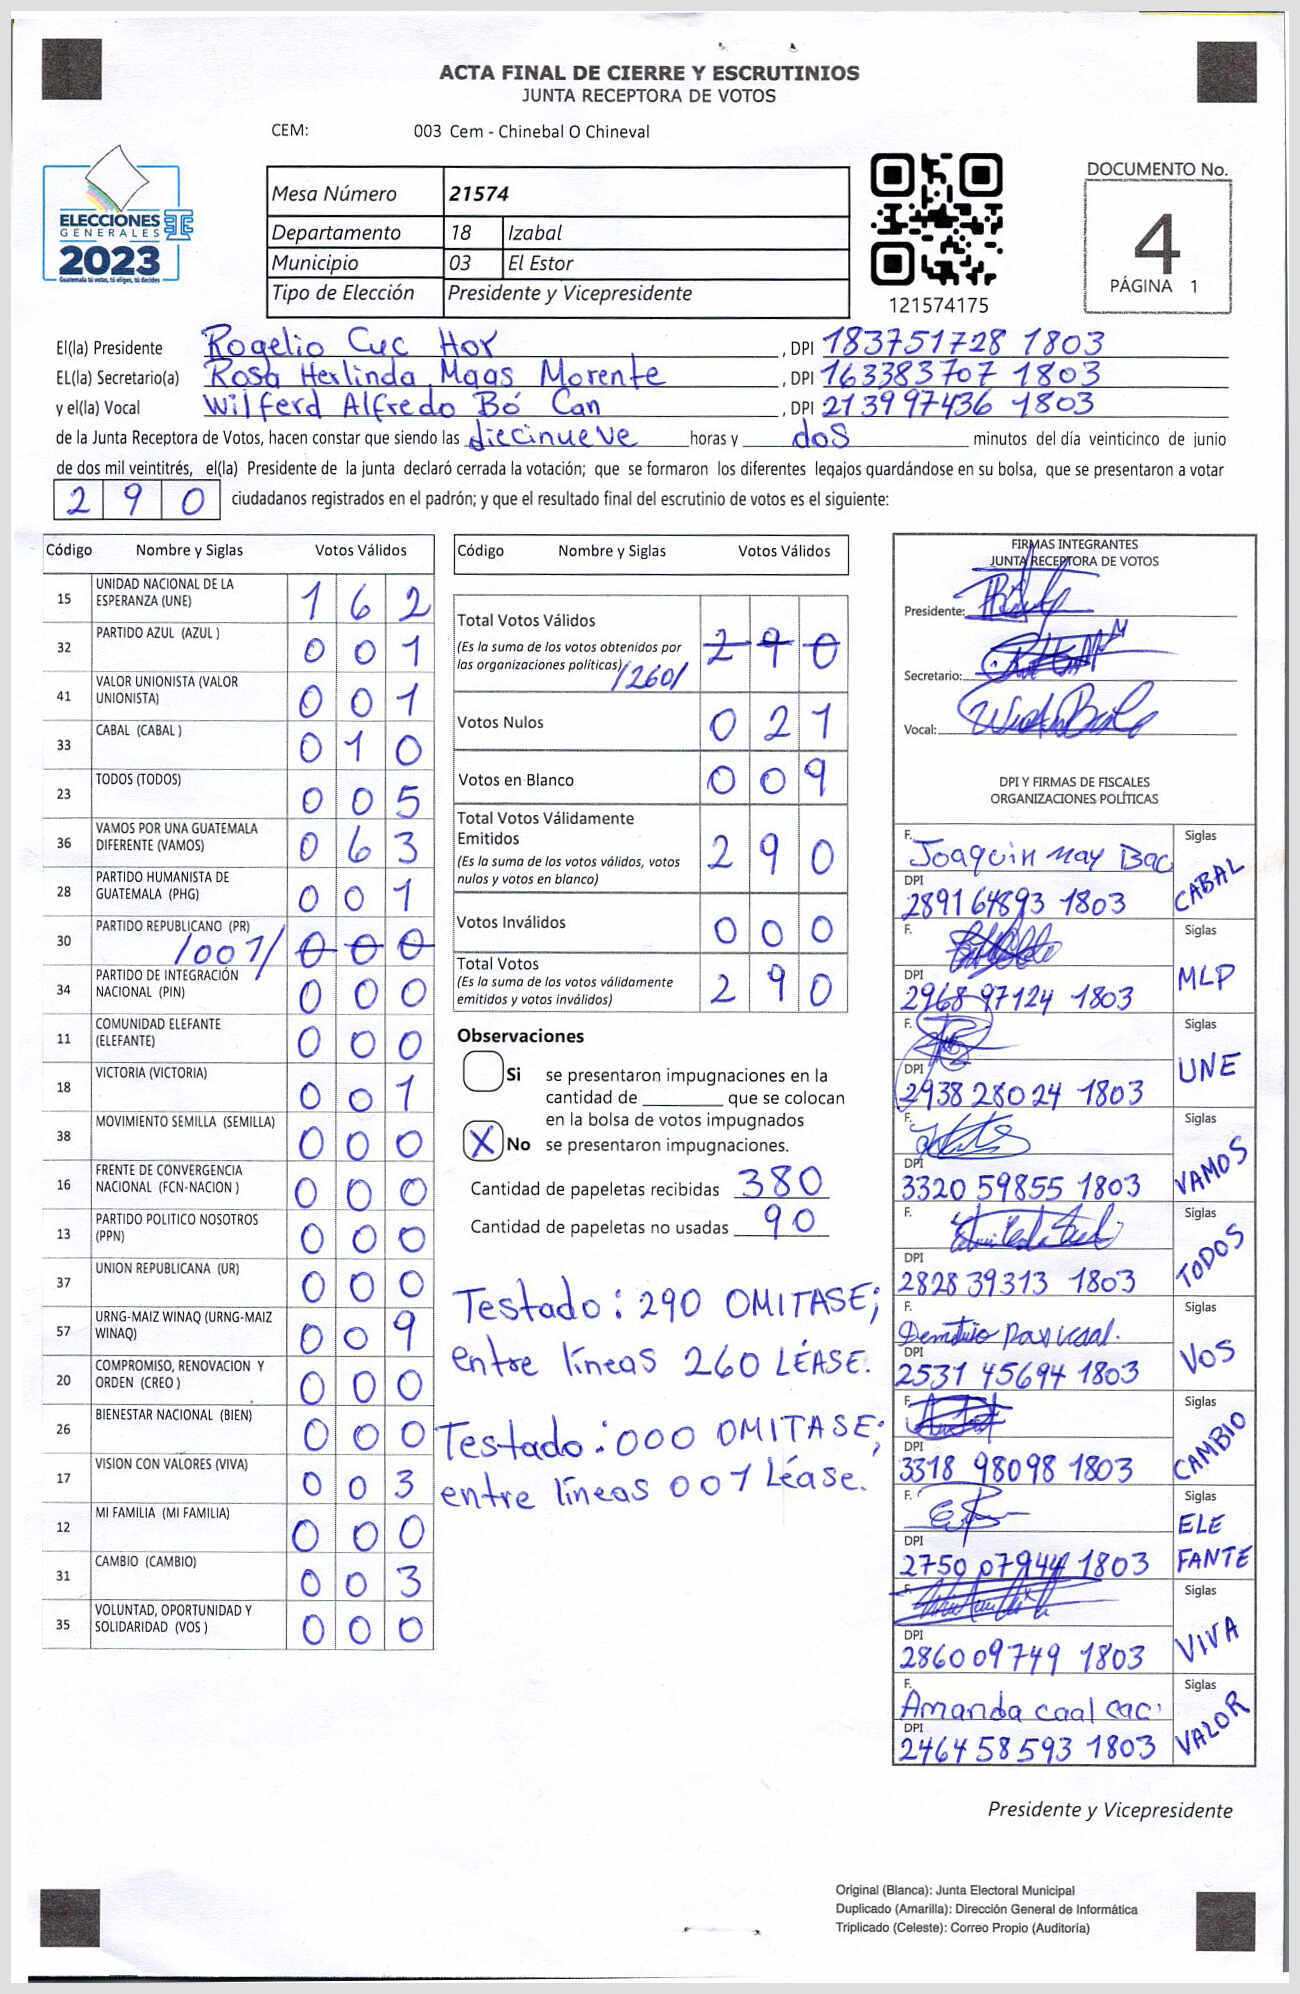 ACTA FINAL DE CIERRE Y ESCRUTINIOS
JUNTA RECEPTORA DE VOTOS
CEM: 003 Cem - Chinebal O Chineval
ELECCIONES
GENERALES
2023
Guatemala tú votas, tú eliges, tú decides
Mesa Número 21574
Departamento 18 Izabal
Municipio 03 El Estor
Tipo de Elección Presidente y Vicepresidente
121574175
DOCUMENTO No.
4
PÁGINA 1
El(la) Presidente Rogelio Cuc Hor, DPI 183751728 1803
EL(la) Secretario(a) Rosa Herlinda Maas Morente, DPI 163383707 1803
y el(la) Vocal Wilferd Alfredo Bó Can, DPI 213997436 1803
de la Junta Receptora de Votos, hacen constar que siendo las diecinueve horas y dos minutos del día veinticinco de junio
de dos mil veintitrés, el(la) Presidente de la junta declaró cerrada la votación; que se formaron los diferentes legajos guardándose en su bolsa, que se presentaron a votar
290 ciudadanos registrados en el padrón; y que el resultado final del escrutinio de votos es el siguiente:
Código Nombre y Siglas Votos Válidos
15 UNIDAD NACIONAL DE LA ESPERANZA (UNE) 1 6 2
32 PARTIDO AZUL (AZUL ) 0 0 1
41 VALOR UNIONISTA (VALOR UNIONISTA) 0 0 1
33 CABAL (CABAL ) 0 1 0
23 TODOS (TODOS) 0 0 5
36 VAMOS POR UNA GUATEMALA DIFERENTE (VAMOS) 0 6 3
28 PARTIDO HUMANISTA DE GUATEMALA (PHG) 0 0 1
30 PARTIDO REPUBLICANO (PR) /001/ 0 0 0
34 PARTIDO DE INTEGRACIÓN NACIONAL (PIN) 0 0 0
11 COMUNIDAD ELEFANTE (ELEFANTE) 0 0 0
18 VICTORIA (VICTORIA) 0 0 1
38 MOVIMIENTO SEMILLA (SEMILLA) 0 0 0
16 FRENTE DE CONVERGENCIA NACIONAL (FCN-NACION ) 0 0 0
13 PARTIDO POLITICO NOSOTROS (PPN) 0 0 0
37 UNION REPUBLICANA (UR) 0 0 0
57 URNG-MAIZ WINAQ (URNG-MAIZ WINAQ) 0 0 9
20 COMPROMISO, RENOVACION Y ORDEN (CREO ) 0 0 0
26 BIENESTAR NACIONAL (BIEN) 0 0 0
17 VISION CON VALORES (VIVA) 0 0 3
12 MI FAMILIA (MI FAMILIA) 0 0 0
31 CAMBIO (CAMBIO) 0 0 3
35 VOLUNTAD, OPORTUNIDAD Y SOLIDARIDAD (VOS ) 0 0 0
Código Nombre y Siglas Votos Válidos
Total Votos Válidos 2 9 0
(Es la suma de los votos obtenidos por
las organizaciones políticas) /260/
Votos Nulos 0 2 1
Votos en Blanco 0 0 9
Total Votos Válidamente
Emitidos 2 9 0
(Es la suma de los votos válidos, votos
nulos y votos en blanco)
Votos Inválidos 0 0 0
Total Votos 2 9 0
(Es la suma de los votos válidamente
emitidos y votos inválidos)
Observaciones
Si se presentaron impugnaciones en la
cantidad de ________ que se colocan
en la bolsa de votos impugnados
X No se presentaron impugnaciones.
Cantidad de papeletas recibidas 380
Cantidad de papeletas no usadas 90
Testado: 290 OMITASE;
entre líneas 260 LÉASE.
Testado: 000 OMITASE;
entre líneas 001 Léase.
FIRMAS INTEGRANTES
JUNTA RECEPTORA DE VOTOS
Presidente:
Secretario:
Vocal:
DPI Y FIRMAS DE FISCALES
ORGANIZACIONES POLÍTICAS
F. Joaquin may Bac Siglas
DPI 2891 64893 1803 CABAL
F. Siglas
DPI 2968 97124 1803 MLP
F. Siglas
DPI 2938 28024 1803 UNE
F. Siglas
DPI 3320 59855 1803 VAMOS
F. Siglas
DPI 2828 39313 1803 TODOS
F. Siglas
DPI 2531 45694 1803 VOS
F.
DPI 3318 98098 1803 CAMBIO
F. Siglas
DPI 2750 07944 1803 ELE FANTE
F. Siglas
DPI 2860 09749 1803 VIVA
F. Amanda caal cac Siglas
DPI 2464 58593 1803 VALOR
Presidente y Vicepresidente
Original (Blanca): Junta Electoral Municipal
Duplicado (Amarilla): Dirección General de Informática
Triplicado (Celeste): Correo Propio (Auditoría)